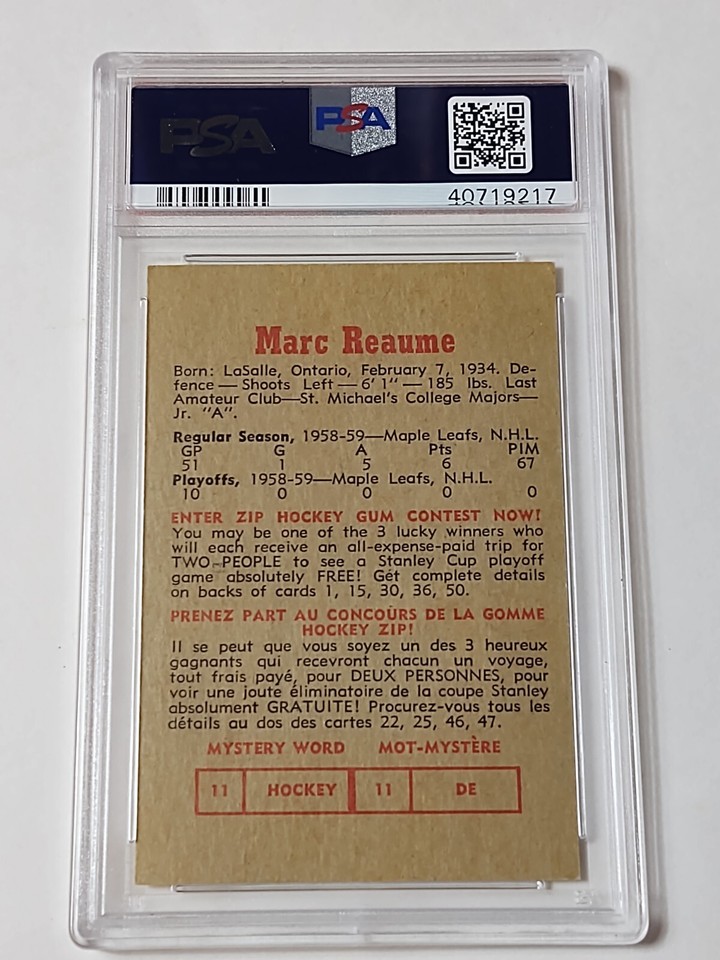 PSA
PSA
40719217
Marc Reaume
Born: LaSalle, Ontario, February 7, 1934. De-
fence — Shoots Left — 6' 1" — 185 lbs. Last
Amateur Club—St. Michael's College Majors—
Jr. "A".
Regular Season, 1958-59—Maple Leafs, N.H.L.
GP G A Pts PIM
51 1 5 6 67
Playoffs, 1958-59—Maple Leafs, N.H.L.
10 0 0 0 0
ENTER ZIP HOCKEY GUM CONTEST NOW!
You may be one of the 3 lucky winners who
will each receive an all-expense-paid trip for
TWO PEOPLE to see a Stanley Cup playoff
game absolutely FREE! Get complete details
on backs of cards 1, 15, 30, 36, 50.
PRENEZ PART AU CONCOURS DE LA GOMME
HOCKEY ZIP!
Il se peut que vous soyez un des 3 heureux
gagnants qui recevront chacun un voyage,
tout frais payé, pour DEUX PERSONNES, pour
voir une joute éliminatoire de la coupe Stanley
absolument GRATUITE! Procurez-vous tous les
détails au dos des cartes 22, 25, 46, 47.
MYSTERY WORD MOT-MYSTÈRE
11 HOCKEY 11 DE